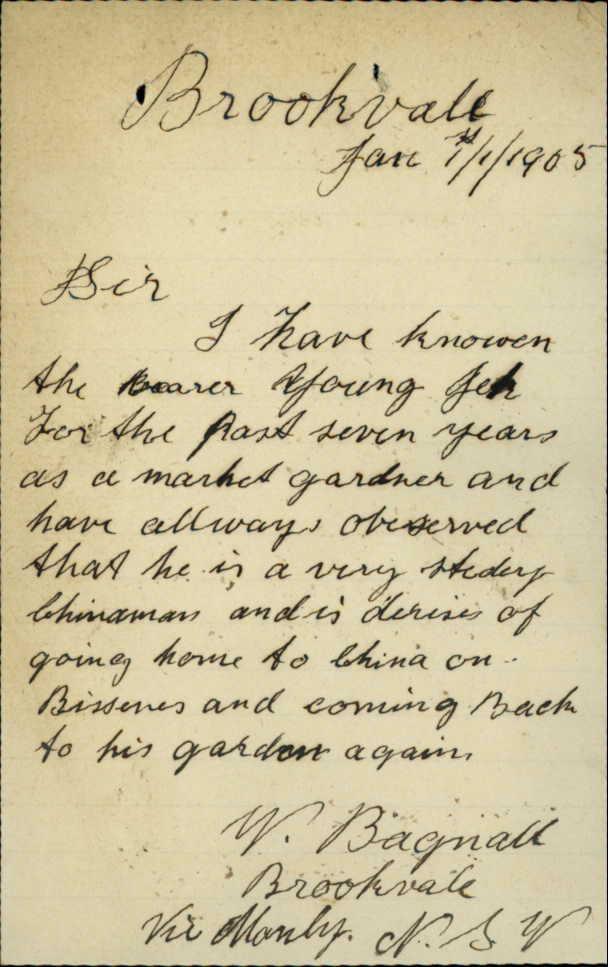 Brookvale
Jan 1st/1/1905
Sir
I have knowen
the bearer Young Jeh
For the Past seven years
as a market gardner and
have allways obeserved
that he is a very stedey
Chinaman and is derises of
going home to China on
Bissenes and coming Back
to his garden again
W. Bagnall
Brookvale
Via Manly. N. S. W